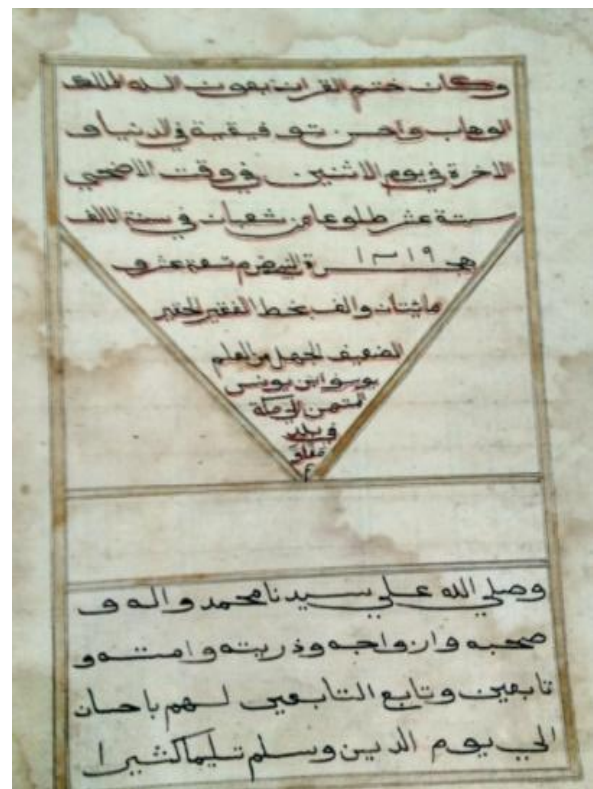 وكان ختم القران بعون الله الملك
الوهاب واحسن توفيقية في الدنيا و
الاخرة في يوم الاثنين في وقت الاضحي
ستة عشر طلوعا من شعبان في سنة الالف
١٢١٩ هجرة النبي تسعة عشر و
مائيتان والف بخط الفقير الحقير
الضعيف الجهل من العلم
ابن يونس
مكة
في بلد
وصلي الله علي سيدنا محمد واله و
صحبه وازواجه وذريته وامته و
تابعين وتابع التابعين لهم باحسان
الي يوم الدين وسلم تسليما كثيرا